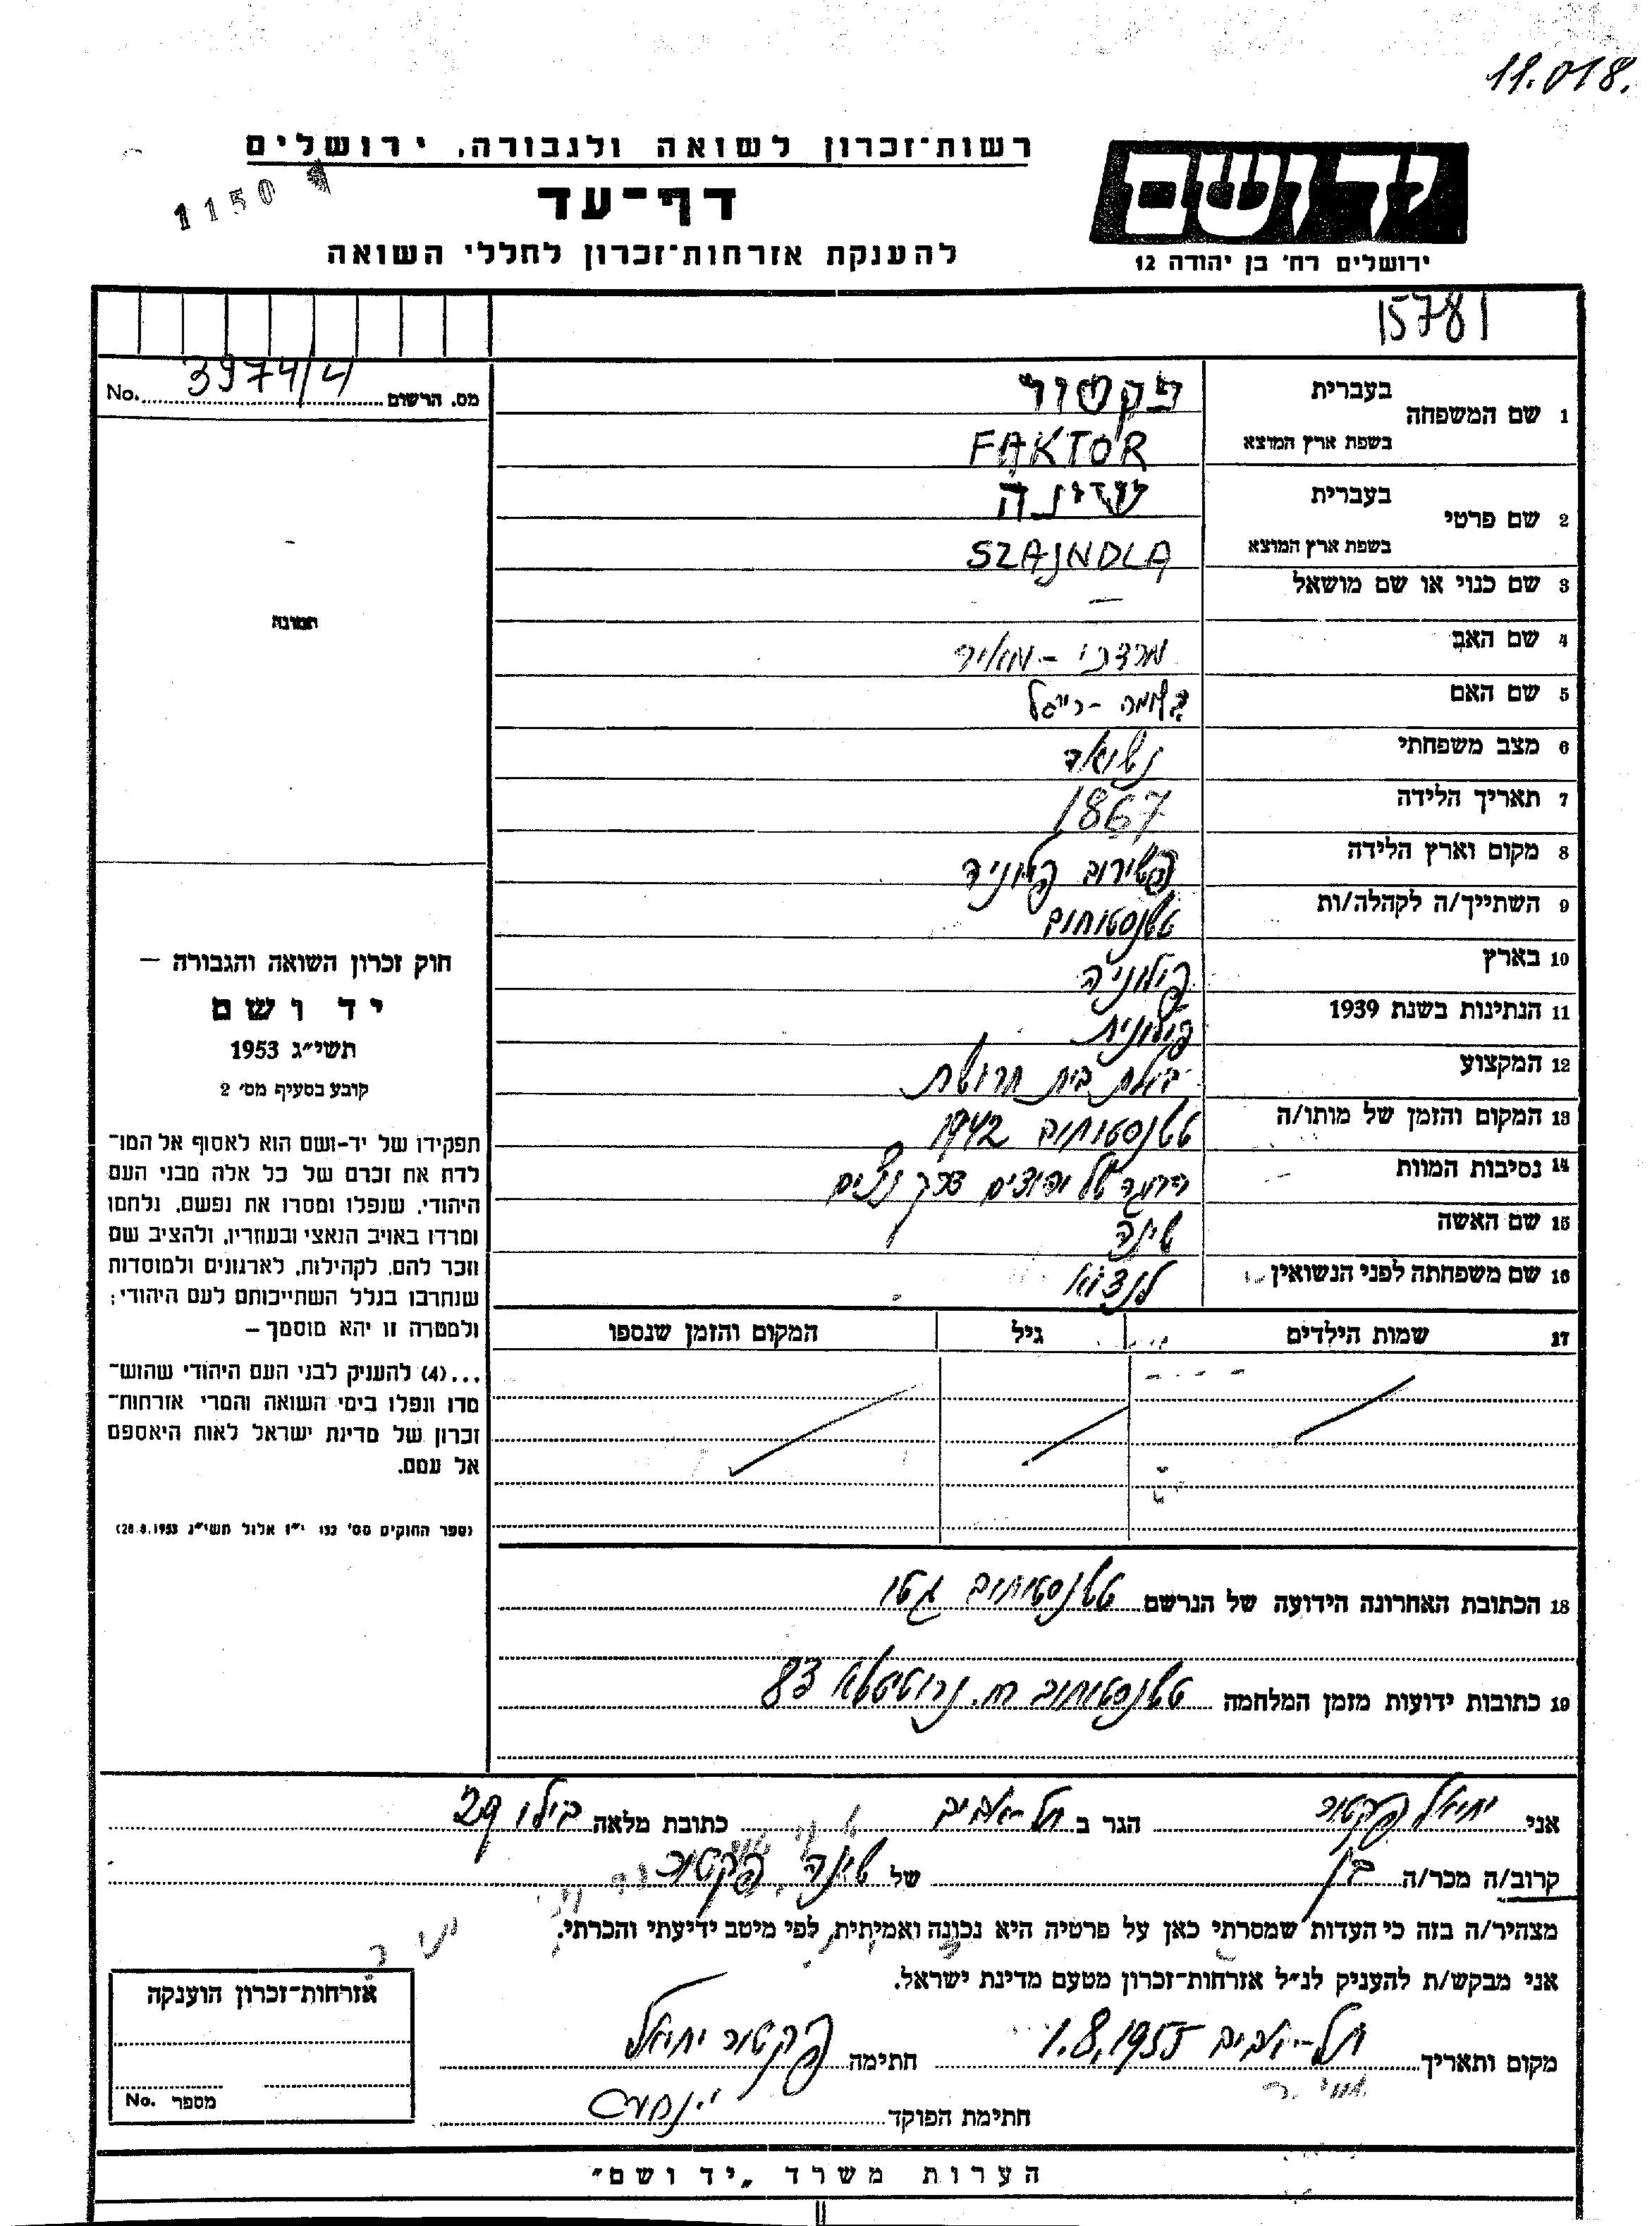 11.018.
רשות־זכרון לשואה ולגבורה, ירושלים
1150
דף־עד
להענקת אזרחות־זכרון לחללי השואה
יד ושם
ירושלים רח׳ בן יהודה 12
15781
No. 3974/4 מס. הרשום
1 שם המשפחה בעברית פקטור
בשפת ארץ המוצא FAKTOR
2 שם פרטי בעברית שינה
בשפת ארץ המוצא SZAJNDLA
3 שם כנוי או שם מושאל —
תמונה
4 שם האב מרדכי - מאיר
5 שם האם
6 מצב משפחתי
7 תאריך הלידה 1867
8 מקום וארץ הלידה
9 השתייך/ה לקהלה/ות טשנסטוחוב
10 בארץ פולניה
11 הנתינות בשנת 1939 פולנית
12 המקצוע בית חרושת
13 המקום והזמן של מותו/ה טשנסטוחוב 1942
14 נסיבות המוות
15 שם האשה שינה
16 שם משפחתה לפני הנשואין
17 שמות הילדים גיל המקום והזמן שנספו
חוק זכרון השואה והגבורה —
יד ושם
תשי״ג 1953
קובע בסעיף מס׳ 2
תפקידו של יד-ושם הוא לאסוף אל המו־
לדת את זכרם של כל אלה מבני העם
היהודי, שנפלו ומסרו את נפשם, נלחמו
ומרדו באויב הנאצי ובעוזריו, ולהציב שם
וזכר להם, לקהילות, לארגונים ולמוסדות
שנחרבו בגלל השתייכותם לעם היהודי;
ולמטרה זו יהא מוסמך —
...(4) להעניק לבני העם היהודי שהוש־
מדו ונפלו בימי השואה והמרי אזרחות־
זכרון של מדינת ישראל לאות היאספם
אל עמם.
(ספר החוקים מס׳ 132 י״ז אלול תשי״ג 28.8.1953)
18 הכתובת האחרונה הידועה של הנרשם טשנסטוחוב גטו
19 כתובות ידועות מזמן המלחמה טשנסטוחוב רח. 83
אני יחיאל פקטור הגר ב תל-אביב כתובת מלאה בילו 29
קרוב/ה מכר/ה בן של שינה פקטור
מצהיר/ה בזה כי העדות שמסרתי כאן על פרטיה היא נכונה ואמיתית, לפי מיטב ידיעתי והכרתי.
אני מבקש/ת להעניק לנ״ל אזרחות־זכרון מטעם מדינת ישראל.
מקום ותאריך תל-אביב 1.8.1955 חתימה פקטור יחיאל
חתימת הפוקד
אזרחות־זכרון הוענקה
No. מספר
הערות משרד „יד ושם״